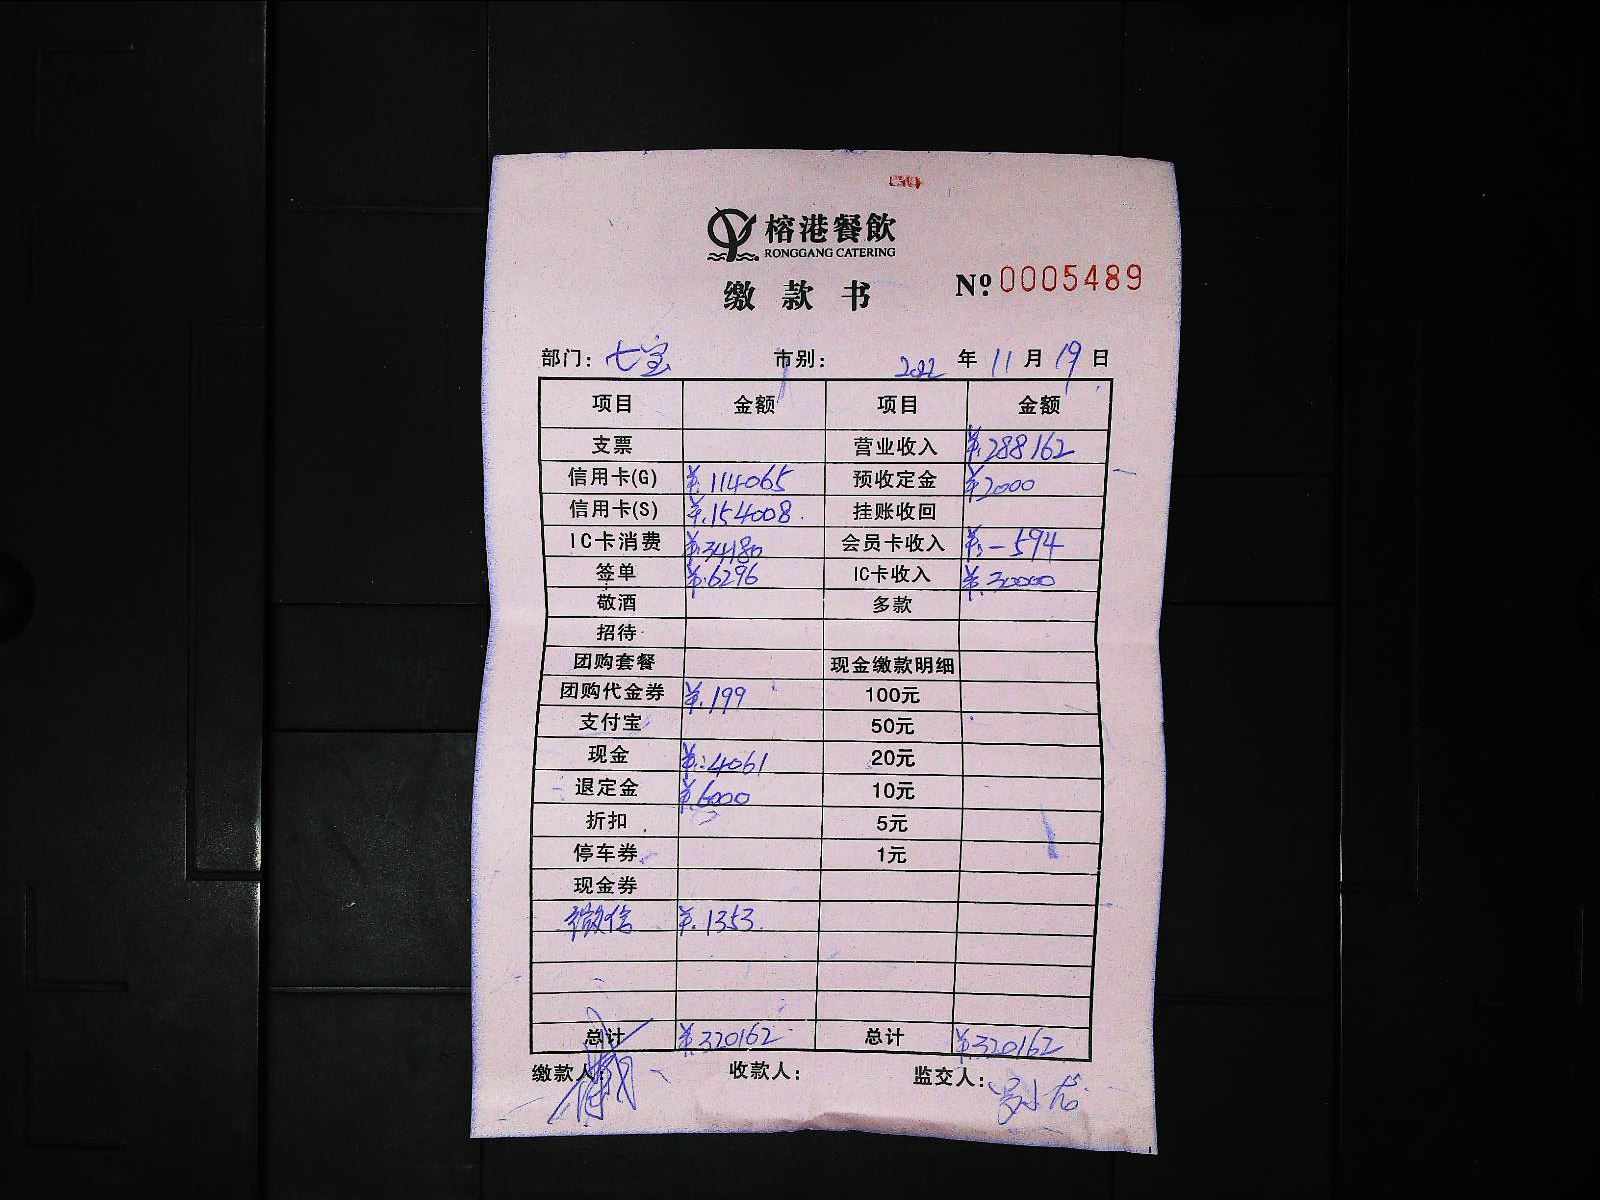 榕港餐飲
RONGGANG CATERING
缴款书 Nº 0005489
部门: 七宝 市别: 2022 年 11 月 19 日
项目 金额 项目 金额
支票 营业收入 ¥288162
信用卡(G) ¥114065 预收定金 ¥2000
信用卡(S) ¥154008 挂账收回
IC卡消费 ¥34180 会员卡收入 ¥-594
签单 ¥6296 IC卡收入 ¥30000
敬酒 多款
招待
团购套餐 现金缴款明细
团购代金券 ¥199 100元
支付宝 50元
现金 ¥4061 20元
退定金 ¥6000 10元
折扣 5元
停车券 1元
现金券
微信 ¥1353
总计 ¥320162 总计 ¥320162
缴款人: 收款人: 监交人: